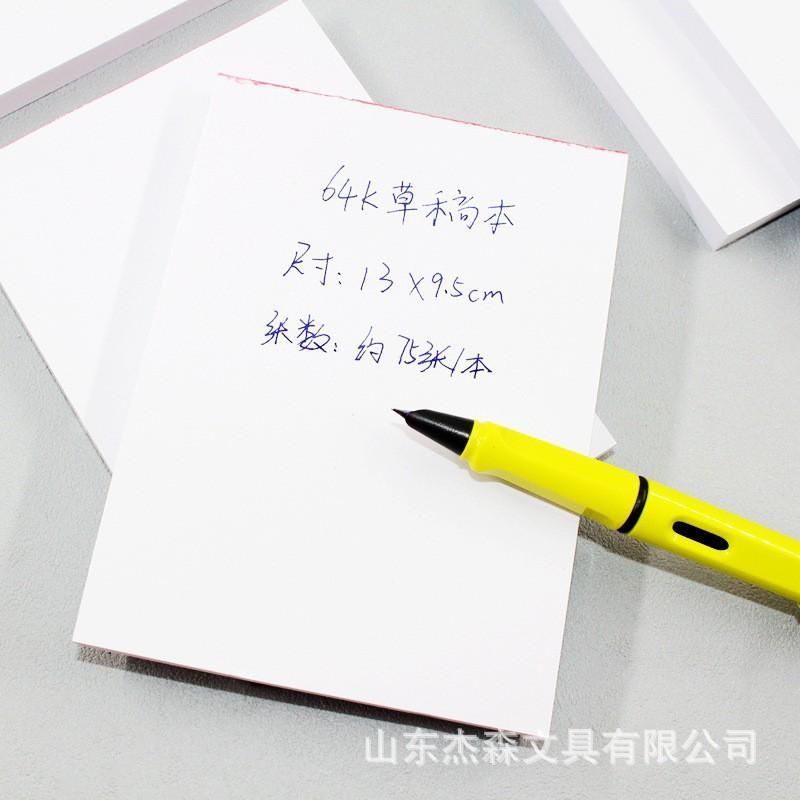 64K草稿本
尺寸：13×9.5cm
张数：约75张/本
山东杰森文具有限公司